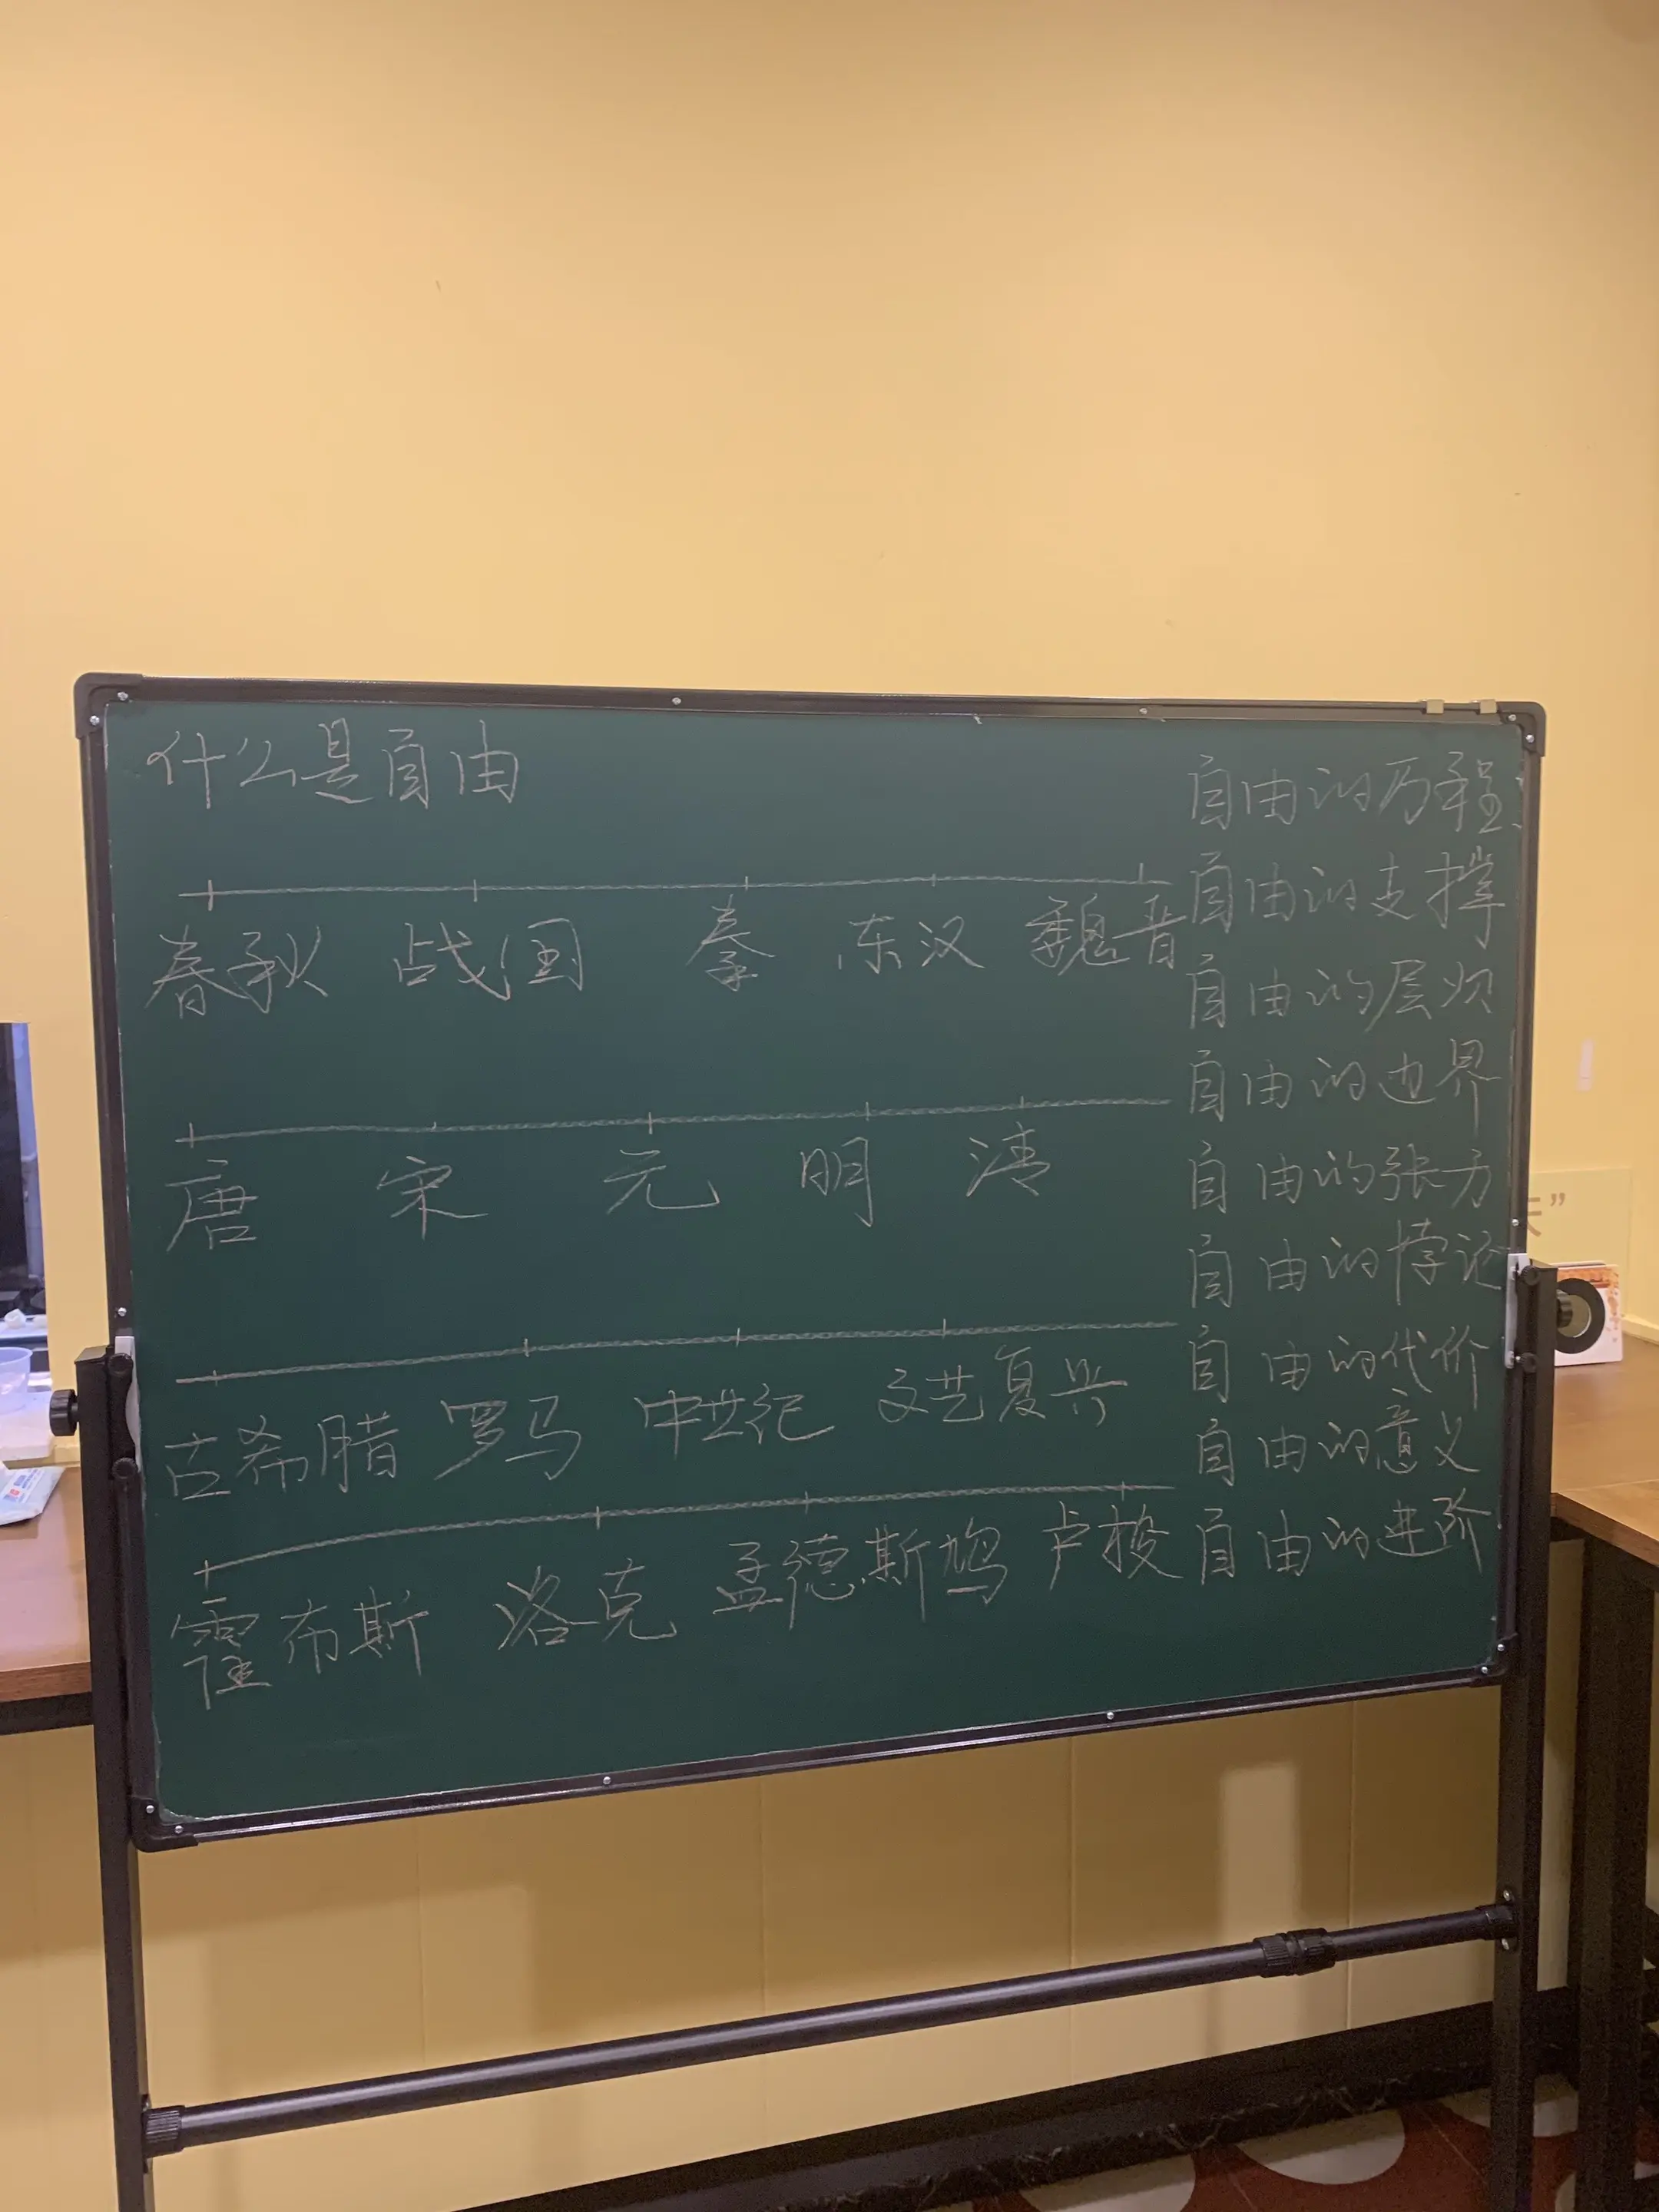 什么是自由
春秋 战国 秦 东汉 魏晋
唐 宋 元 明 清
古希腊 罗马 中世纪 文艺复兴
霍布斯 洛克 孟德斯鸠 卢梭
自由的历程
自由的支撑
自由的层次
自由的边界
自由的张力
自由的悖论
自由的代价
自由的意义
自由的进阶